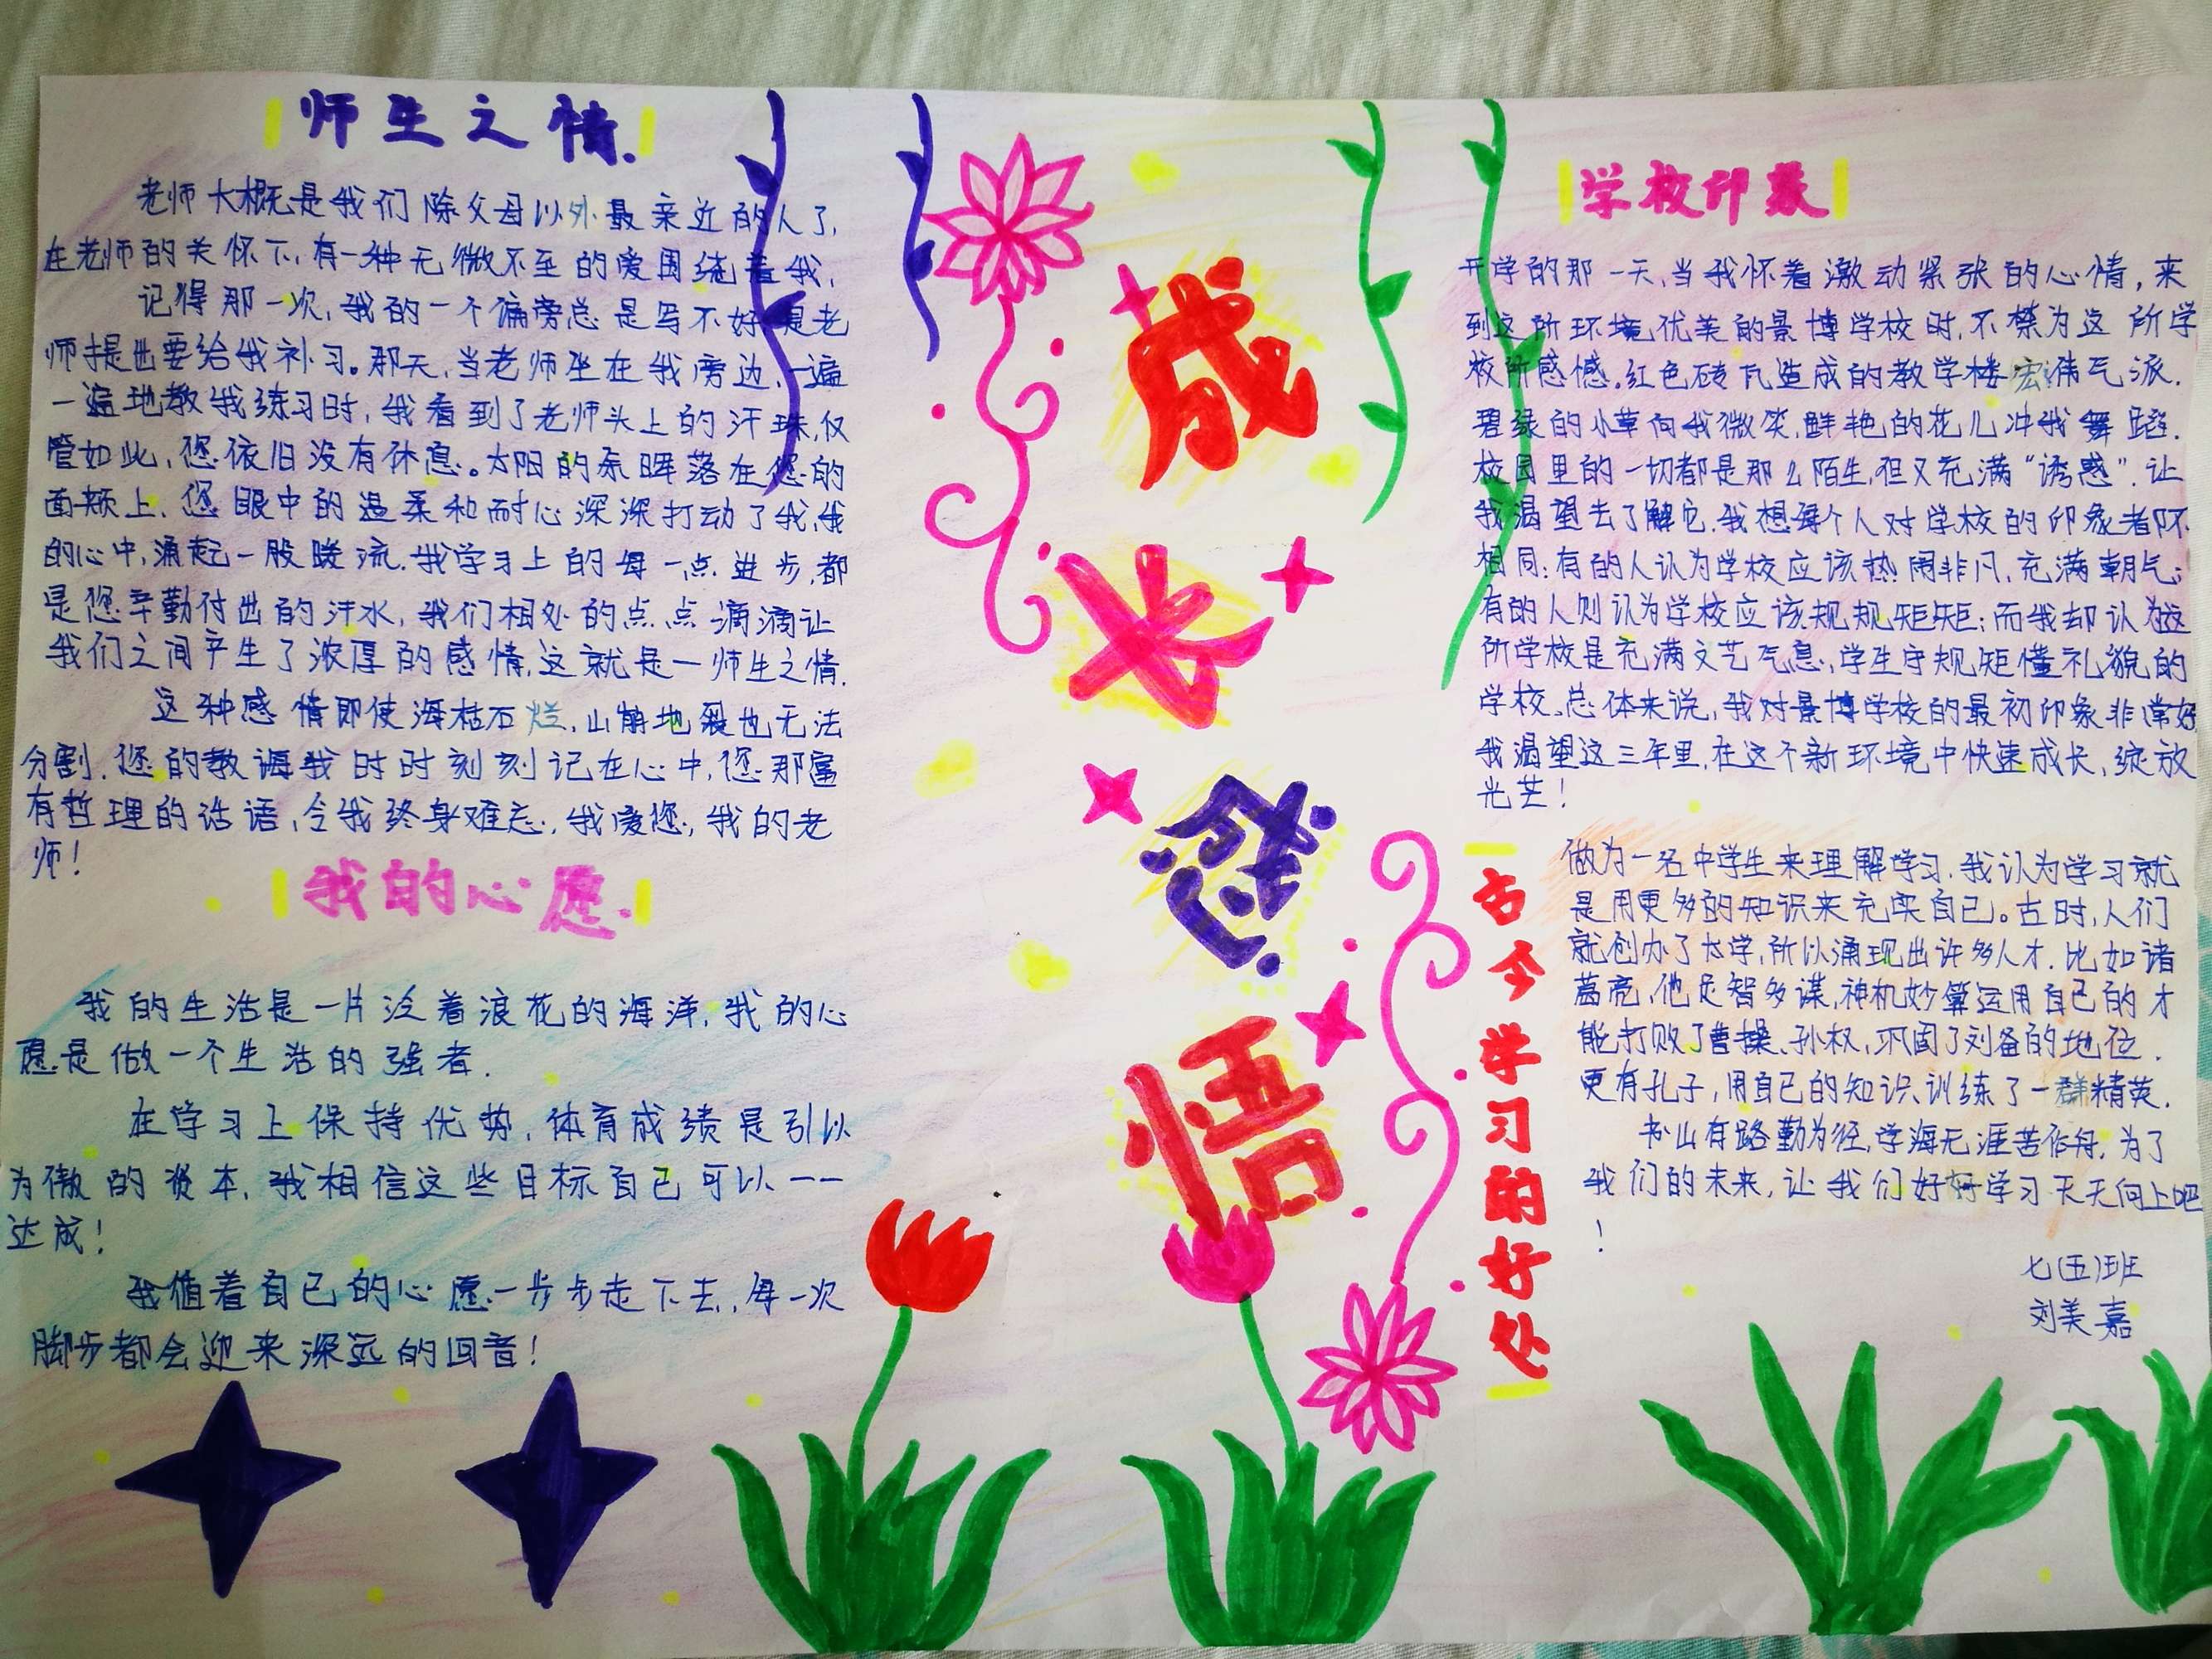 师生之情.
老师大概是我们除父母以外最亲近的人了,
在老师的关怀下,有一种无微不至的爱围绕着我,
记得那一次,我的一个偏旁总是写不好,是老
师提出要给我补习。那天,当老师坐在我旁边,一遍
一遍地教我练习时,我看到了老师头上的汗珠,仅
管如此,您依旧没有休息。太阳的余晖落在您的
面颊上,您眼中的温柔和耐心深深打动了我,我
的心中,涌起一股暖流.我学习上的每一点进步,都
是您辛勤付出的汗水,我们相处的点点滴滴让
我们之间产生了浓厚的感情,这就是一师生之情.
这种感情即使海枯石烂,山崩地裂也无法
分割.您的教诲我时时刻刻记在心中,您那富
有哲理的话语,令我终身难忘,我爱您,我的老
师!
我的心愿.
我的生活是一片泛着浪花的海洋,我的心
愿是做一个生活的强者.
在学习上保持优势,体育成绩是引以
为傲的资本,我相信这些目标自己可以一一
达成!
我值着自己的心愿一步步走下去,每一次
脚步都会迎来深远的回音!
成
长
感
悟
学校印象
开学的那一天,当我怀着激动紧张的心情,来
到这所环境优美的景博学校时,不禁为这所学
校所感憾.红色砖瓦造成的教学楼宏伟气派.
碧绿的小草向我微笑,鲜艳的花儿冲我舞蹈.
校园里的一切都是那么陌生,但又充满“诱惑”.让
我渴望去了解它.我想每个人对学校的印象都不
相同:有的人认为学校应该热闹非凡,充满朝气;
有的人则认为学校应该规规矩矩;而我却认为这
所学校是充满文艺气息,学生守规矩懂礼貌的
学校.总体来说,我对景博学校的最初印象非常好
我渴望这三年里,在这个新环境中快速成长,绽放
光芒!
古今学习的好处
做为一名中学生来理解学习.我认为学习就
是用更多的知识来充实自己。古时,人们
就创办了太学,所以涌现出许多人才.比如诸
葛亮,他足智多谋,神机妙算运用自己的才
能打败了曹操、孙权,巩固了刘备的地位.
更有孔子,用自己的知识训练了一群精英.
书山有路勤为径,学海无涯苦作舟.为了
我们的未来,让我们好好学习天天向上吧
!
七(五)班
刘美嘉